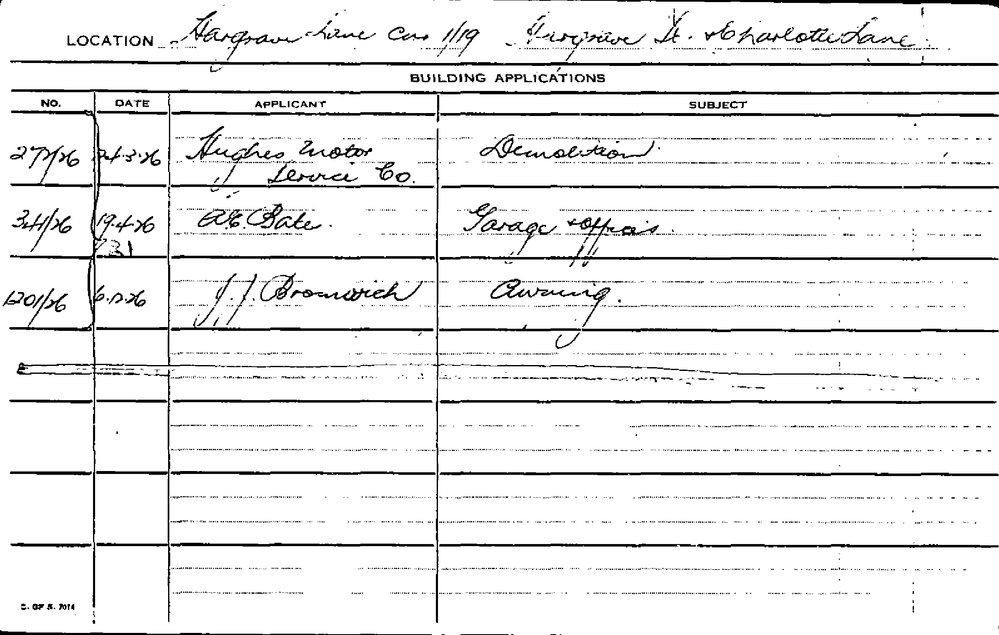 LOCATION Hargrave Lane Cnr 1/19 Hargrave St. & Charlotte Lane
BUILDING APPLICATIONS
NO. DATE APPLICANT SUBJECT
272/26 24.3.26 Hughes Motor Demolition
Service Co.
341/26 19.4.26 A.E. Bate. Garage & offices.
1201/26 6.12.26 J. J. Bromwich Awning.